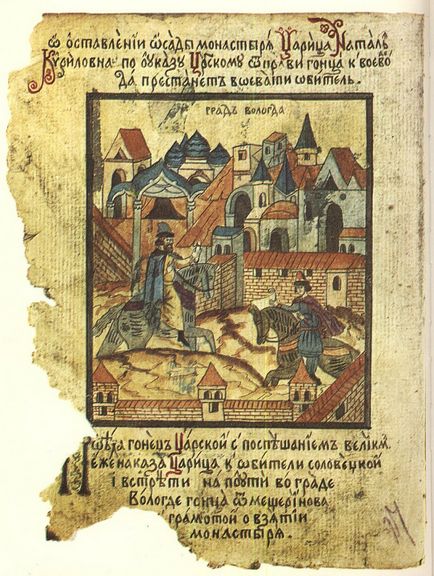 Ѿ ѡставленїи ѡсады монастырѧ Царица Наталь
Кѵриловна по ѹказѹ Црскомѹ ѿправи гонца к воево
да престанетъ воевати ѡбитель.
градъ вологда
гонецъ Царской с поспѣшанїемъ велїкї
еже наказа Царица к ѡбители соловецкой
ї встрѣти на пѹти во граде
Вологде гонца ѿ мещерїнова
грамотой о взѧтїи
монастырѧ.